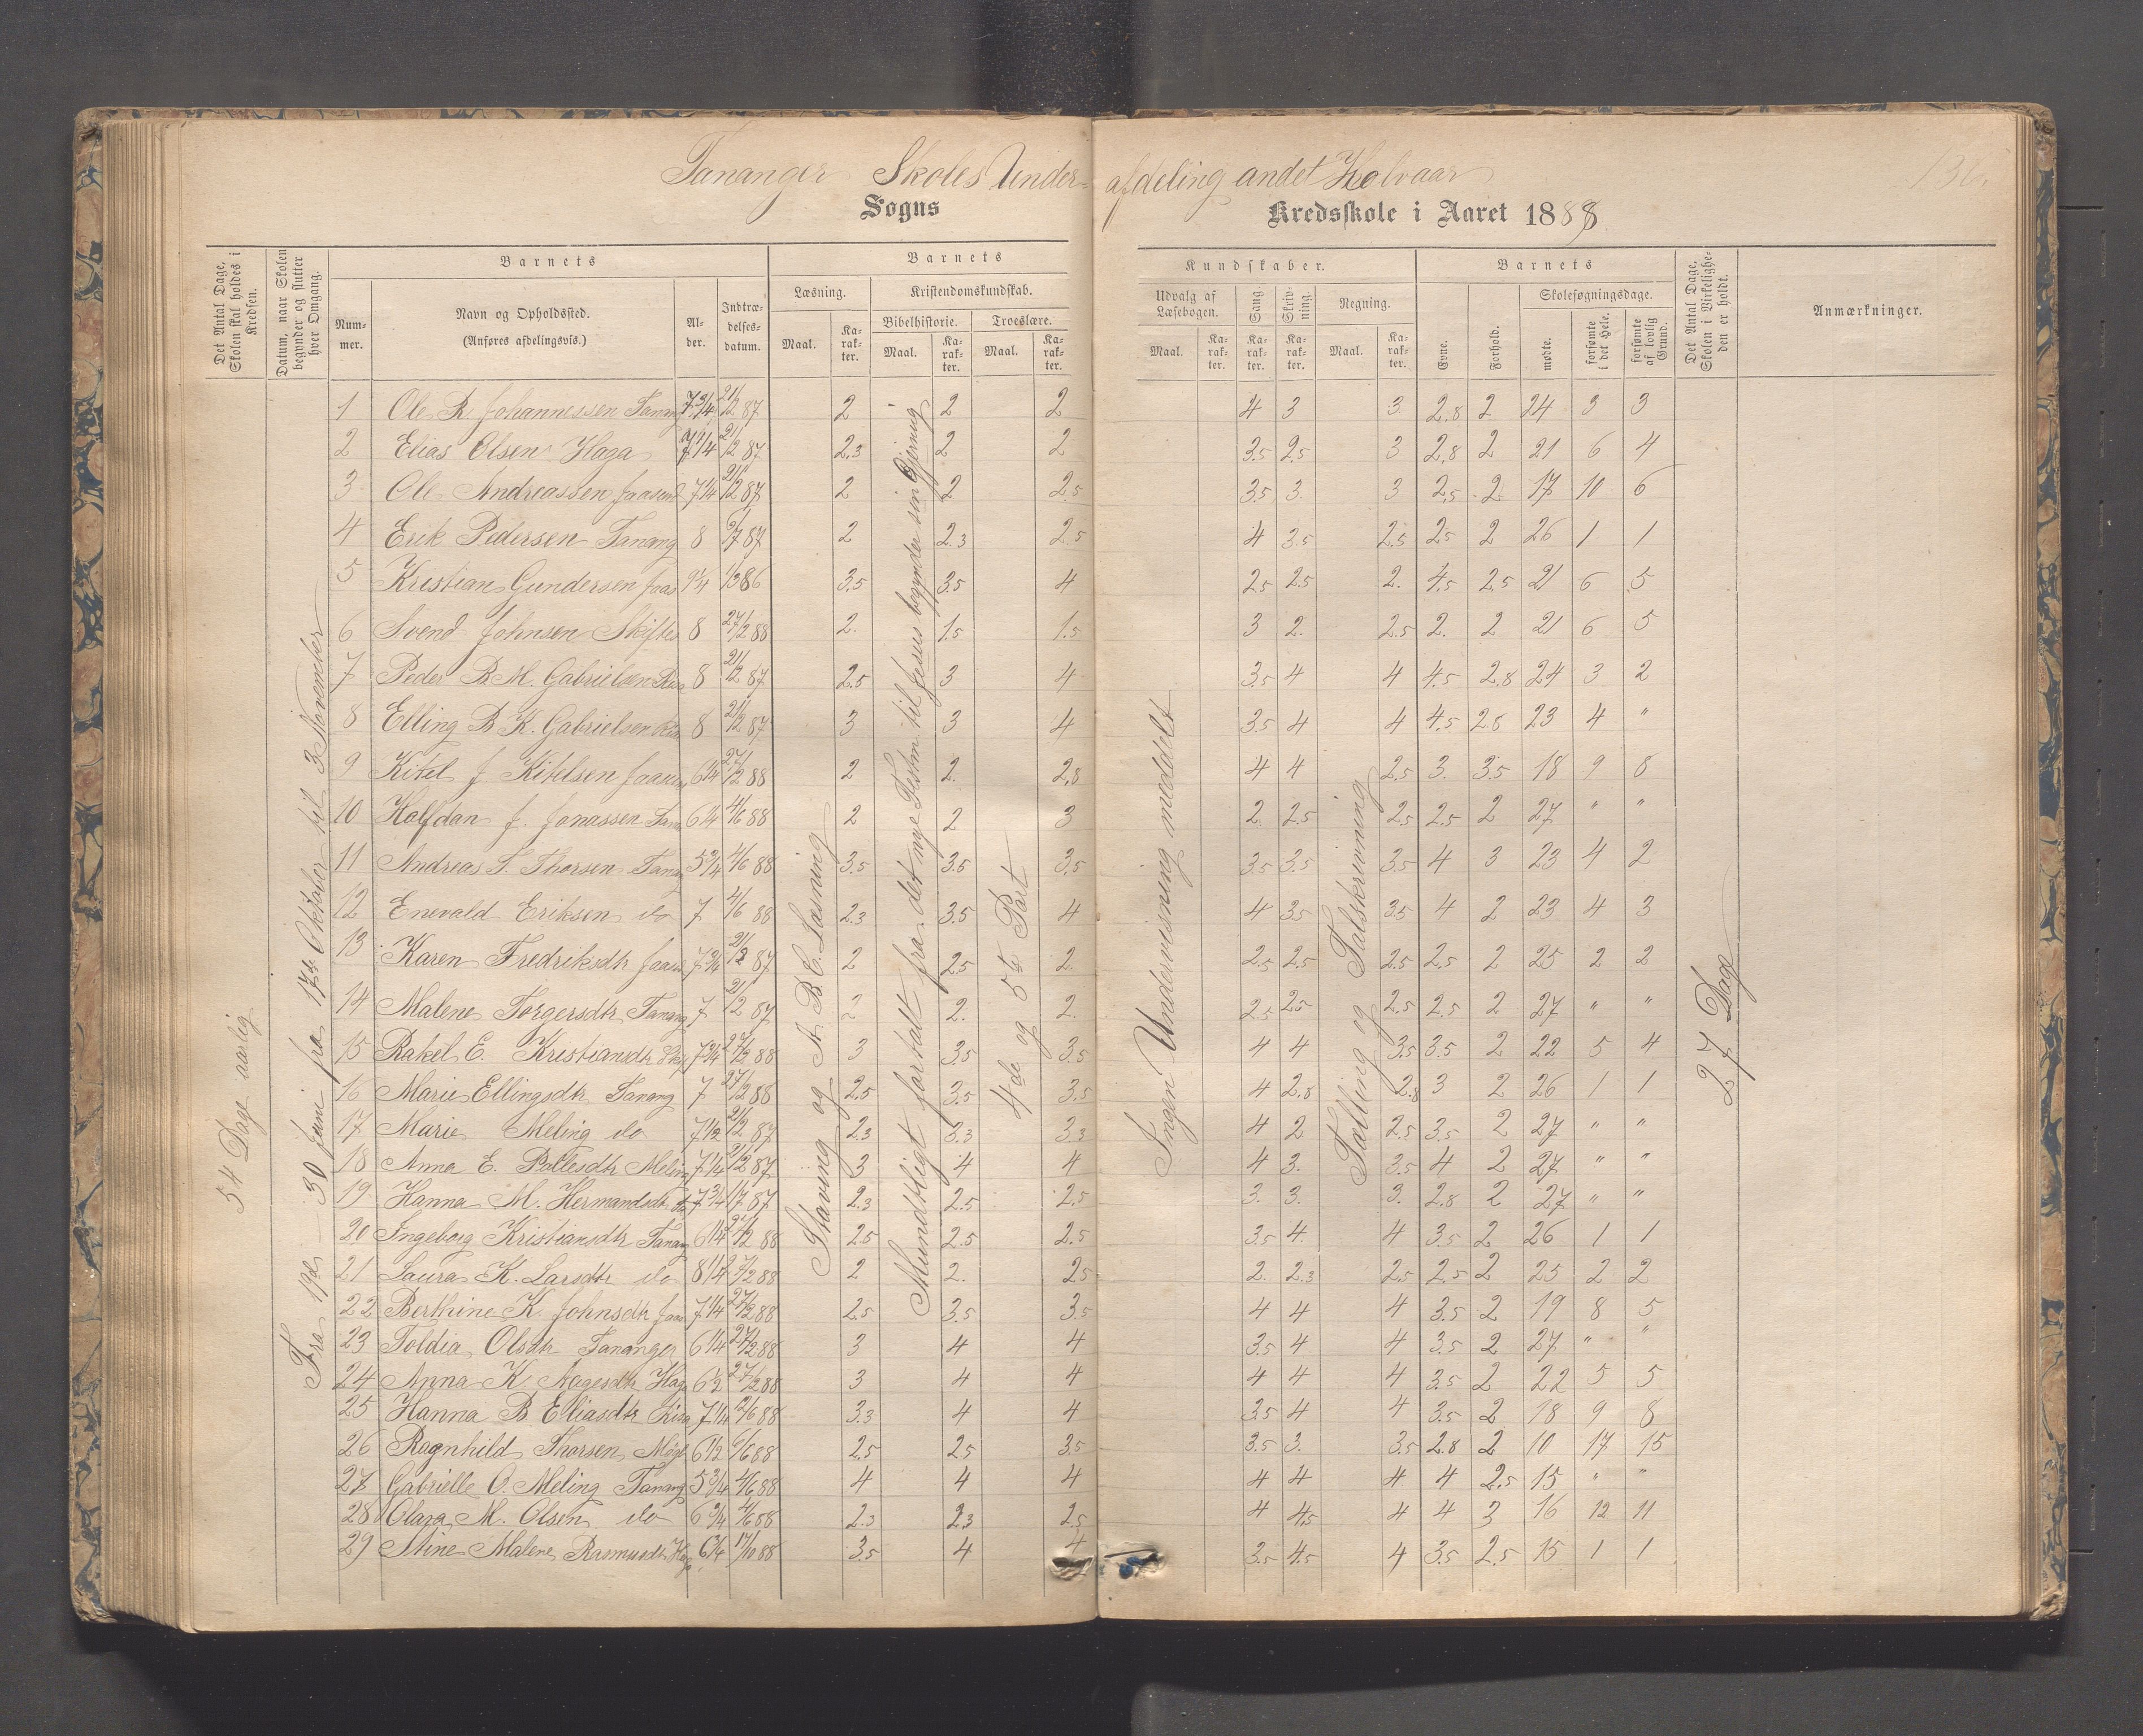 Tananger Skoles Under- afdeling andet Halvaar
Sogns Kredsskole i Aaret 1888
Det Antal Dage, Skolen skal holdes i Kredsen.
Datum, naar Skolen begynder og slutter hver Omgang.
Barnets
Nummer.
Navn og Opholdssted.
(Anføres afdelingsvis.)
Alder.
Indtrædelsesdatum.
Barnets
Læsning.
Kristendomskundskab.
Bibelhistorie.
Troeslære.
Maal.
Karakter.
Maal.
Karakter.
Maal.
Karakter.
Kundskaber.
Udvalg af Læsebogen.
Sang.
Skrivning.
Regning.
Maal.
Karakter.
Karakter.
Karakter.
Maal.
Karakter.
Barnets
Evne.
Forhold.
Skolesøgningsdage.
mødte.
forsømte i det Hele.
forsømte af lovlig Grund.
Det Antal Dage, Skolen i Virkeligheden er holdt.
Anmærkninger.
54 Dage aarlig
Fra 19de - 30 Juni fra 17de Oktober til 3 November
Staving og A B C Læsning
Mundtligt fortalt fra det nye Testm. til Jesus begynder sin Gjerning
4de og 5te Part
Ingen Undervisning meddelt
Tælling og Talskrivning
27 Dage
1 Ole R. Johannessen Tanang 7 3/4 21/12 87 2 2 2 4 3 3 2.8 2 24 3 3
2 Elias Olsen Haga 7 1/4 21/12 87 2.3 2 2 3.5 2.5 3 2.8 2 21 6 4
3 Ole Andreassen Jaasund 7 1/4 21/12 87 2 2 2.5 3.5 3 3 2.5 2 17 10 6
4 Erik Pedersen Tanang 8 87 2 2.3 2.5 4 3.5 2.5 2.5 2 26 1 1
5 Kristian Gundersen Jaas 9 1/4 86 3.5 3.5 4 2.5 2.5 2. 4.5 2.5 21 6 5
6 Svend Johnsen Skiftes 8 27/2 88 2. 1.5 1.5 3 2. 2.5 2. 2 21 6 5
7 Peder B. M. Gabrielsen 8 21/12 87 2.5 3 4 3.5 4 4 4.5 2.8 24 3 2
8 Elling B K. Gabrielsen 8 21/12 87 3 3 4 3.5 4 4 4.5 2.8 23 4 "
9 Kitel J Kitelsen Jaasun 6 1/4 27/2 88 2 2. 2.8 4 4 2.5 3. 3.5 18 9 8
10 Halfdan J. Jonassen Tana 6 1/4 4/6 88 2 2 3 2. 2.5 2.5 2.5 2 27 " "
11 Andreas S. Thorsen Tanang 5 3/4 4/6 88 3.5 3.5 3.5 3.5 3.5 3.5 4 3 23 4 2
12 Enevald Eriksen do 7 4/6 88 2.3 3.5 4 4 3.5 3.5 4 2 23 4 3
13 Karen Fredriksdtr Jaasu 7 3/4 21/12 87 2 2.5 2. 2.5 2.5 2.5 2.5 2 25 2 2
14 Malene Torgersdtr Tanang 7 21/12 87 2 2. 2. 2.5 2.5 2.5 2.5 2 27 " "
15 Rakel E. Kristiansdtr 7 3/4 27/2 88 3 3.5 3.5 4 4 3.5 3.5 2 22 5 4
16 Marie Ellingsdtr Tanang 7 27/2 88 2.5 3.5 3.5 4 2.8 2.8 3 2 26 1 1
17 Marie Meling do 7 1/2 21/12 87 2.3 3.3 3.3 4 2 2.5 3.5 2 27 " "
18 Anna E. Pallesdtr Meling 7 1/4 21/12 87 3 4 4 4 3. 3.5 4 2 27 " "
19 Hanna M. Hermandsdtr do 7 3/4 87 2.3 2.5 2.5 3. 3. 3. 2.8 2 27 " "
20 Ingeborg Kristiansdtr Tanang 6 1/4 27/2 88 2.5 2.5 2.5 3.5 4. 4 3.5 2 26 1 1
21 Laura K. Larsdtr do 8 1/4 27/2 88 2 2. 2.5 2. 2.3 2.5 2.5 2 25 2 2
22 Berthine K. Johnsdtr Jaas 7 1/4 27/2 88 2.5 3.5 3.5 4 4 4 3.5 2 19 8 5
23 Toldia Olsdtr Tananger 6 1/4 27/2 88 3 4 4 3.5 4 4 3.5 2 27 " "
24 Anna K Aagesdtr Haga 6 1/2 27/2 88 3 4 4 4 4 4 3.5 2 22 5 5
25 Hanna B Eliasdtr Risa 7 1/4 88 3.3 4 4 3.5 4 4 3.5 2 18 9 8
26 Ragnhild Thorsen 6 1/2 88 2.5 2.5 3.5 3.5 3. 3.5 2.8 2 10 17 15
27 Gabrielle O. Meling Tanang 5 3/4 4/6 88 4 4 4 4 4 4 4 2.5 15 " "
28 Clara M. Olsen do 6 3/4 4/6 88 2.3 2.3 2.5 4 4.5 4 4 3 16 12 11
29 Stine Malene Rasmusdtr Haga 6 3/4 17/10 88 3.5 4 4 3.5 4.5 4 3.5 2.5 15 1 1